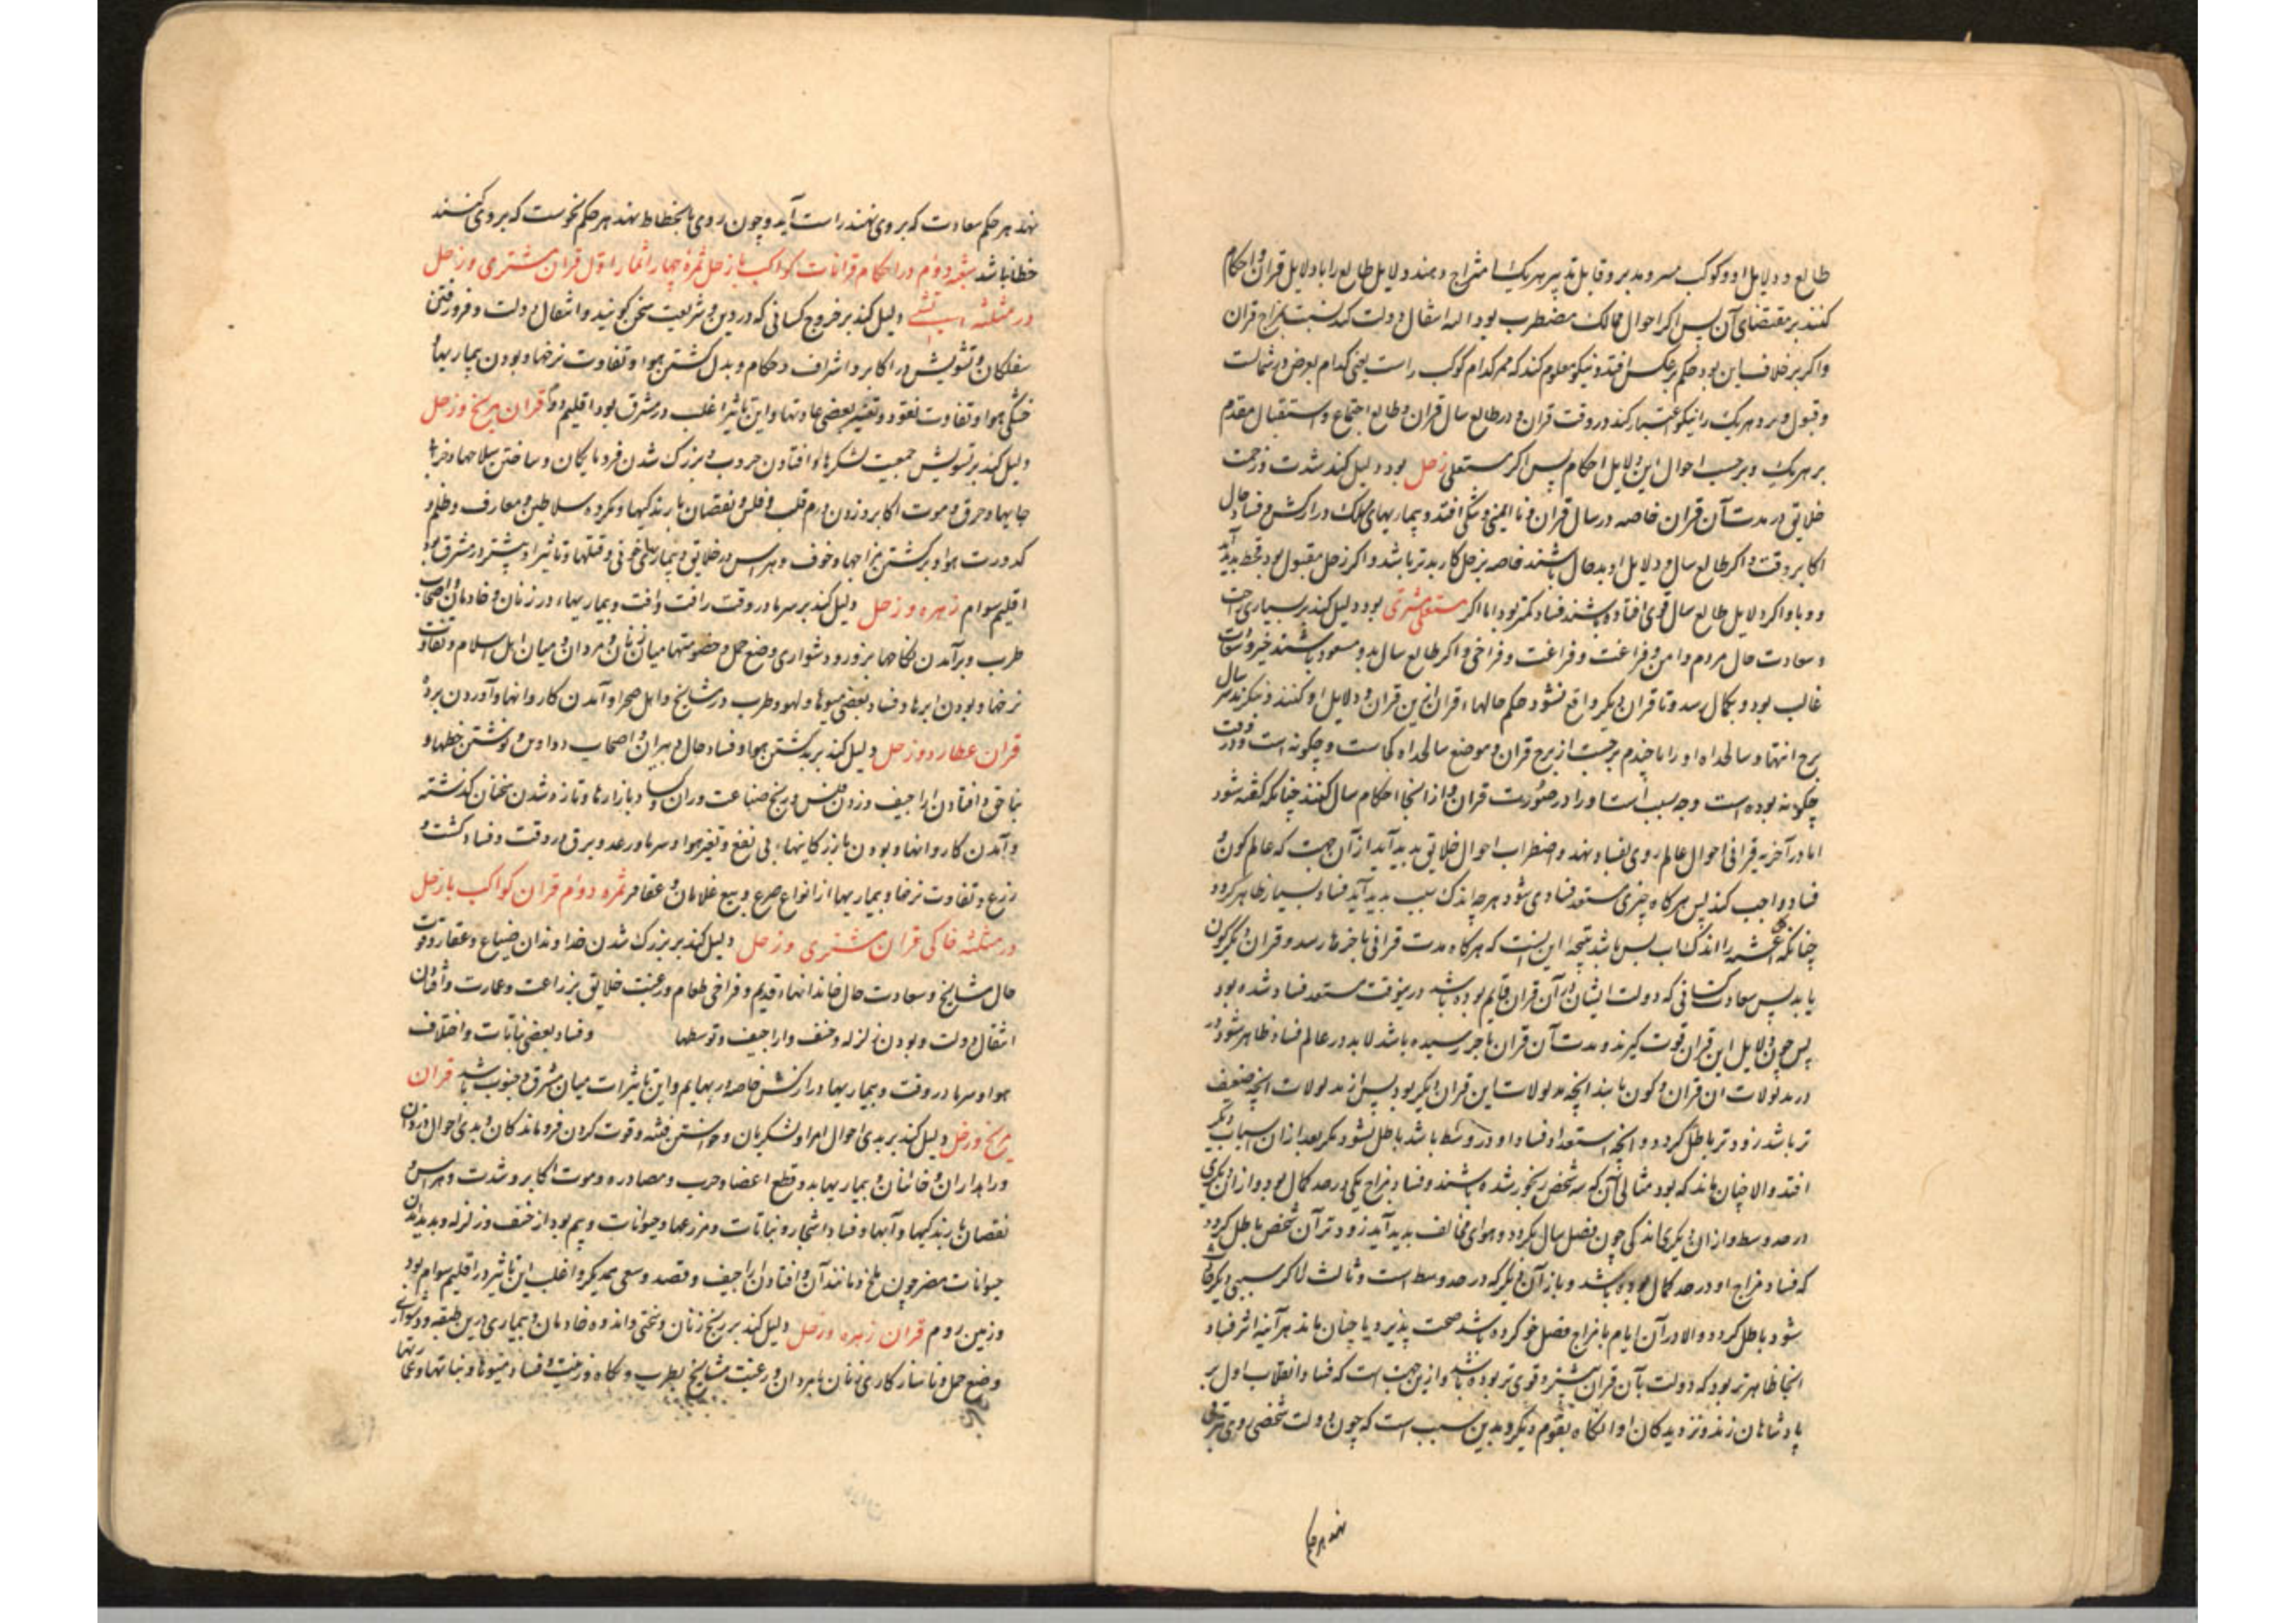 طالع و دلایل او و کوکب مسر و مدبر و قابل تدبیر هر یک امتزاج دهند و دلایل طالع را با دلایل قران و احکام
کنند بر مقتضای آن پس اگر احوال ممالک مضطرب بود انتقال دولت کند نسبت مزاج قران
و اگر برخلاف این بود حکم برعکس افتد و نیکو معلوم کند که ممر کدام کوکب راست یعنی کدام بعرض در شمالست
و قبول و برد هر یک را نیکو اعتبار کند در وقت قران و در طالع سال قران و طالع اجتماع و استقبال مقدم
بر هر یک و برحسب احوال این دلایل احکام پس اگر مستعلی زحل بود دلیل کند شدت و زحمت
خلایق در مدت آن قران خاصه در سال قران و نا ایمنی و تنگی افتد و بیماریهای مهلک و دراز کش و فساد حال
اکابر وقت و اگر طالع سال و دلایل او بدحال باشند خاصه زحل کار بدتر باشد و اگر زحل مقبول بود قحط پدید آید
و وبا و اگر دلایل طالع سال قوی افتاده باشند فساد کمتر بود اما اگر مستعلی مشتری بود دلیل کند بر بسیاری راحت
و سعادت حال مردم و امن و فراغت و فراغت و فراخی و اگر طالع سال بدو مسعود باشند خیر و سعادت
غالب بود و بکمال رسد و تا قران دیگر واقع نشود حکم حالهاء قران ازین قران و دلایل او کنند و بنگرند هر سال
برج انتها و سالخداه او را تا چندم برجست از برج قران و موضع سالخداه کجاست و چگونه است و در وقت
چگونه بوده است و چه سبب است او را در صورت قران و از انجا احکام سال کنند چنانکه گفته شود
اما در آخر هر قرانی احوال عالم روی بفساد نهد و اضطراب احوال خلایق پدید آید از آن جهت که عالم کون و
فساد واجب کند پس هر گاه چیزی مستعد فسادی شود هر چه اندک سبب پدید آید فساد بسیار ظاهر گردد
چنانکه را اندک اسباب بس باشد نتیجه این انست که هر گاه مدت قرانی بآخر ها رسد و قران دیگر کون
یابد پس سعادت کسانی که دولت ایشان در آن قران قایم بوده باشد درینوقت مستعد فساد شده بود
پس چون دلایل این قران قوت گیرند و مدت آن قران بآخر رسیده باشد لابد در عالم فساد ظاهر شود در
در مدلولات ان قران و کون یابند انچه مدلولات این قران دیگر بود پس از مدلولات انچه ضعیف
تر باشد زودتر باطل گردد و انچه استعداد فساد او در وسط باشد باطل نشود مگر بعد از ان اسباب دیگر
افتد و الا چنان ماند که بود مثال آن که سه شخص رنجور شده باشند و فساد مزاج یکی در حد کمال بود و از ان دیگری
در حد وسط و از ان دیگری اندکی چون فصل سال بگردد و هوای مخالف پدید آید زودتر آن شخص باطل گردد
که فساد مزاج او در حد کمال بوده باشد و باز آن دیگر که در حد وسط است و ثالث اگر سببی دیگر
شود باطل گردد و الا در آن ایام با مزاج فصل خو کرده باشد صحت پذیرد یا چنان ماند هر آینه اثر فساد
انجا ظاهرتر بود که دولت بآن قران بیشتر و قوی تر بوده باشد و ازین جهت است که فساد و انقلاب اول بر
پادشاهان زند و نزدیکان او انگاه بقوم دیگر و بدین سبب است که چون دولت شخصی روی بترقی
نهند هر حکم
نهد هر حکم سعادت که بر وی نهند راست آید و چون روی بانحطاط نهد هر حکم نحوست که بر وی کنند
خطا نباشد شعبه دوم در احکام قرانات کواکب با زحل ثمره چهار اثمار اول قران مشتری و زحل
در مثلثه آتشی دلیل کند بر خروج کسانی که در دین و شریعت سخن گویند و انتقال دولت و فرو رفتن
سفلگان و تشویش در اکابر و اشراف و حکام و بدل گشتن هوا و تفاوت نرخها و بودن بیماریها و
خشکی هوا و تفاوت نقود و تغییر بعضی عادتها و این تاثیر اغلب در مشرق بود اقلیم دوم قران مریخ و زحل
دلیل کند بر تشویش جمعیت لشکرها و افتادن حروب و بزرگ شدن فرومایگان و ساختن سلاحها و خرابی
جایها و حرق و موت اکابر و زدن درم قلب و فلس و نقصان بارندگیها و مکروه سلاطین و معارف و ظلم و
کدورت هوا و برگشتن مزاجها و خوف و هراس در خلایق و بیماریهای خونی و قتلها و تاثیر او بیشتر در مشرق بود
اقلیم سوام زهره و زحل دلیل کند بر سرما در وقت رافت و آفت و بیماریهاء در زنان و خادمان و اصحاب
طرب و برآمدن نکاحها بزور و دشواری وضع حمل و خصومتها میان زنان و مردان و میان اهل اسلام و تفاوت
نرخها و بودن ابرها و فساد بعضی میوها و لهو و طرب در مشایخ و اهل صحرا و آمدن کاروانها و آوردن برده
قران عطارد و زحل دلیل کند بر بد گشتن هوا و فساد حال دبیران و اصحاب دواوین و نوشتن خطها و
بناحق و افتادن اراجیف و زدن فلس و رنج صناعت وران و کساد بازارها و تازه شدن سخنان گذشته
و آمدن کاروانها و بودن بازرگانیهاء بی نفع و تغیر هوا و سرما و رعد و برق در وقت و فساد کشت و
زرع و تفاوت نرخها و بیماریها از انواع صرع و بیع غلامان و عقاقر ثمره دوام قران کواکب با زحل
در مثلثه خاکی قران مشتری و زحل دلیل کند بر بزرگ شدن خداوندان ضیاع و عقار و قوت
حال مشایخ و سعادت حال خاندانهاء قدیم و فراخی طعام و رغبت خلایق بزراعت و عمارت و افتادن
انتقال دولت و بودن زلزله و خسف و اراجیف و توسطها و فساد بعضی نباتات و اختلاف
هوا و سرما در وقت و بیماریها دراز کش خاصه در بهایم و این تاثیرات میان مشرق و جنوب باشد قران
مریخ و زحل دلیل کند بر بدی احوال امرا و لشکریان و خواستن فتنه و قوت کردن فروماندگان و بدی احوال دزدان
و راهداران و خاینان و بیماریها بد و قطع اعضا و حرب و مصادره و موت اکابر و شدت و هراس و
نقصان بارندگیها و آبها و فساد اشجار و نباتات و مزرعها و حیوانات و بیم بود از خسف و زلزله و پدید آمدن
حیوانات مضر چون ملخ و مانند آن و افتادن اراجیف و قصد و سعی همدیگر و اغلب این تاثیر در اقلیم سوام بود
و زمین روم قران زهره و زحل دلیل کند بر رنج زنان و سختی و اندوه خادمان و بیماری درین طبقه و دشواری
وضع حمل و ناسازکاری زنان با مردان و رغبت مشایخ بطرب و نکاه و زینت و فساد میوها و نباتها و